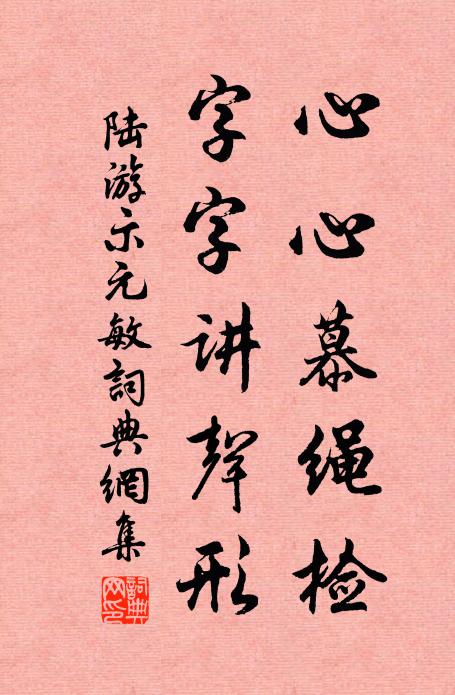 心心慕绳检
字字讲聲形
陆游示元敏詞典網集
詞典网印